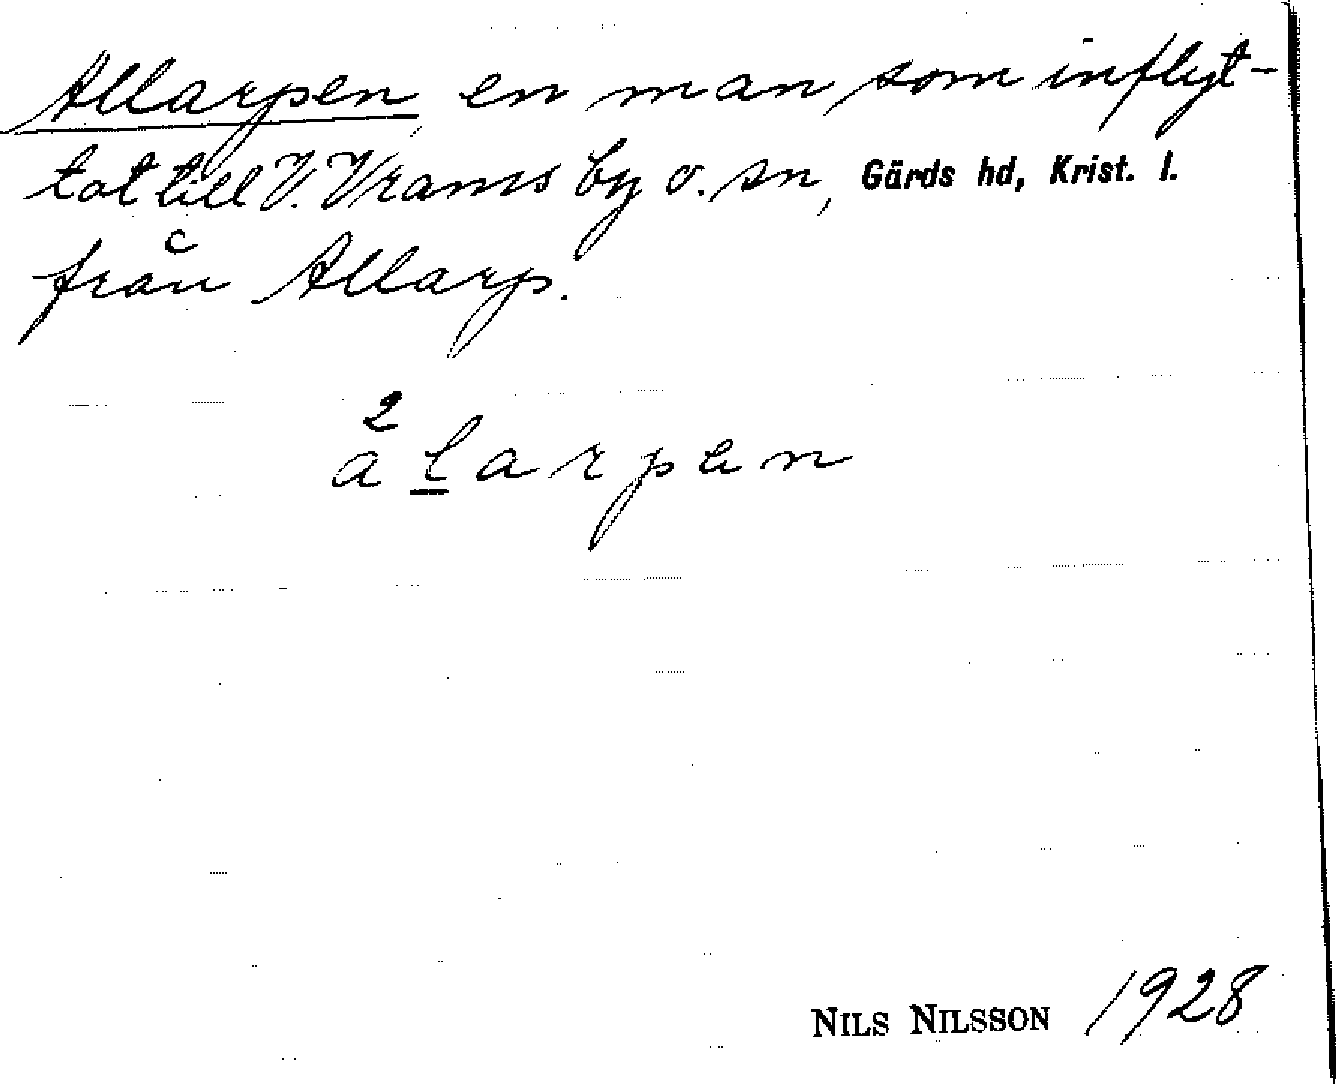 Allarpen, en man som inflyt-
tat till V. Vrams by o. sn, Gärds hd, Krist. l.
från Allarp.
2
a l a r p e n
NILS NILSSON 1928